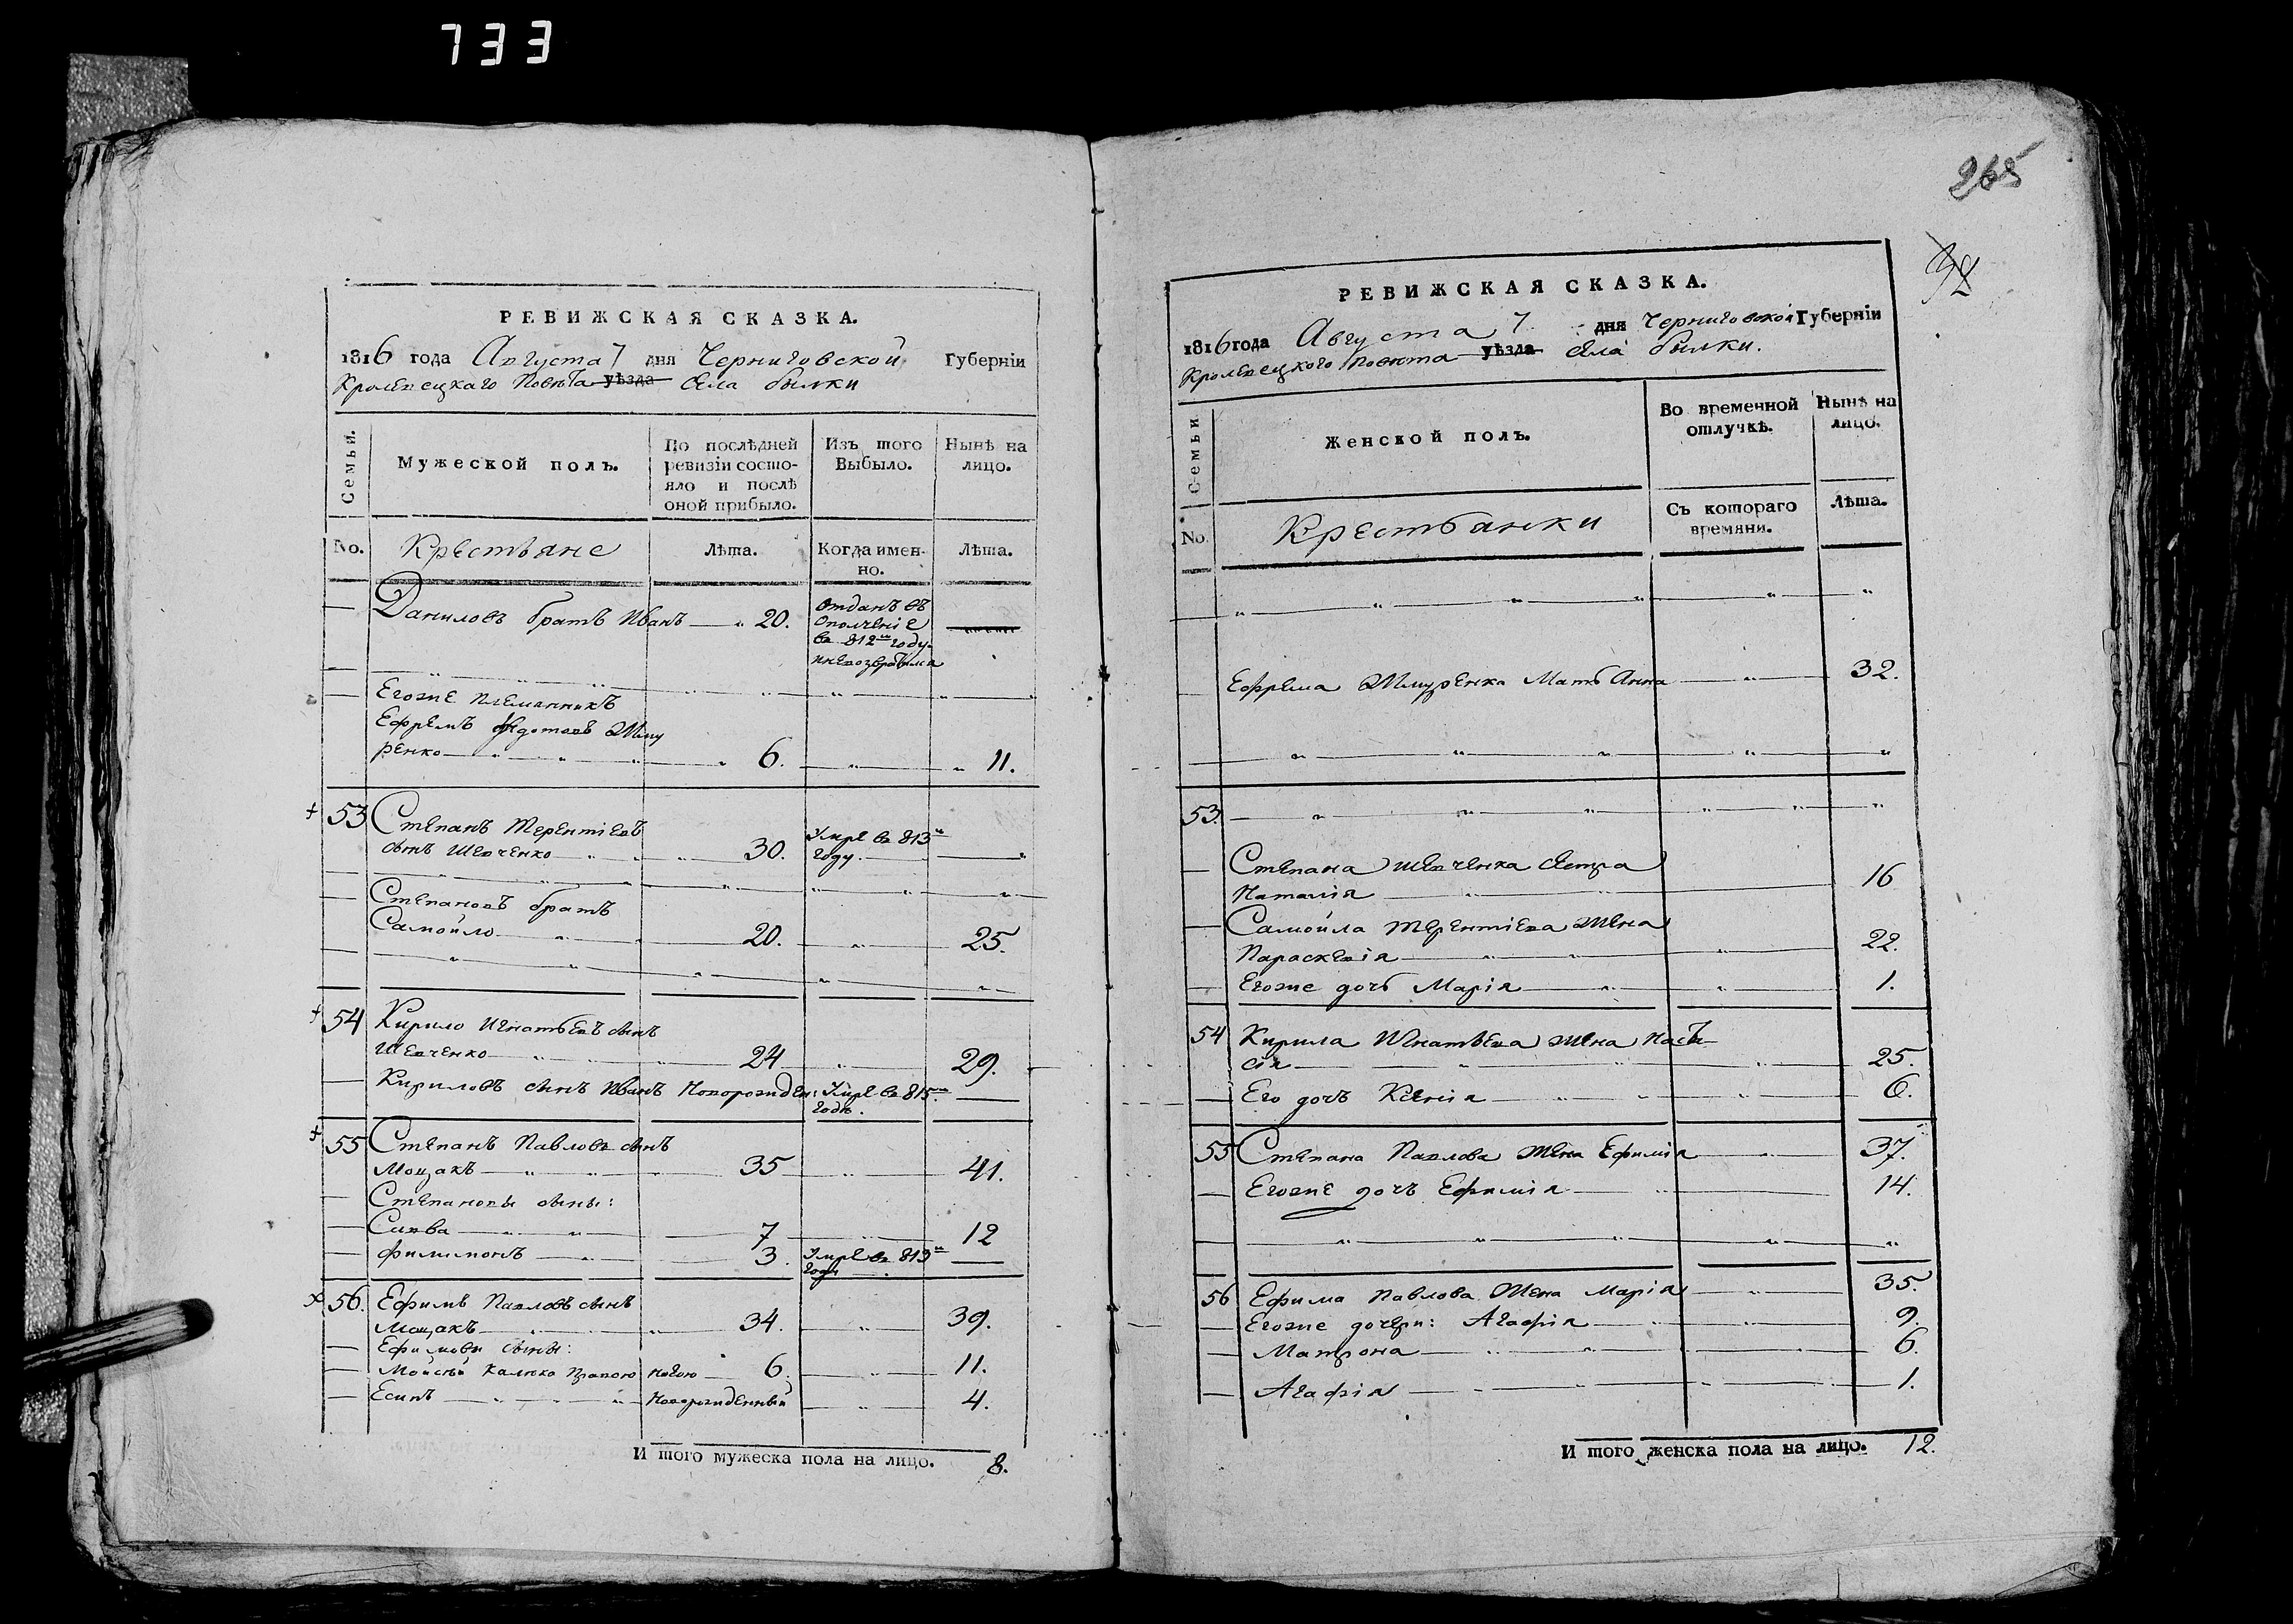 733
265
РЕВИЖСКАЯ СКАЗКА.
1816 года Августа 7 дня Черниговской Губерніи
Кролевецкаго Повѣта уѣзда Села Билки
Семьи.
Мужеской полъ.
По послѣдней ревизіи состояло и послѣ оной прибыло.
Изъ того Выбыло.
Нынѣ на лицо.
No.
Крестьяне
Лѣта.
Когда именно.
Лѣта.
Даниловъ братъ Иванъ 20. Отданъ въ
Ополченіе
въ 812м году
Егоже племянникъ
Ефремъ Федотовъ
ренко 6. 11.
53 Степанъ Терентіевъ
сынъ Шевченко 30. Умре въ 813м
году.
Степановъ братъ
Самойло 20. 25.
54 Кирило Игнатьевъ сынъ
Шевченко 24 29.
Кириловъ сынъ Иванъ Новорожден: Умре въ 815м
годѣ.
55 Степанъ Павловъ сынъ
Моцакъ 35 41.
Степановы сыны:
Савва 7 12
Филимонъ 3. Умре въ 813м
году
56. Ефимъ Павловъ сынъ
Моцакъ 34. 39.
Ефимовы сыны:
Мойсѣй Калѣка правою ногою 6. 11.
Есипъ Новорожденный 4.
И того мужеска пола на лицо. 8.
РЕВИЖСКАЯ СКАЗКА.
1816 года Августа 7 дня Черниговской Губерніи
Кролевецкого Повѣта уѣзда Села Билки.
Семьи
Женской полъ.
Во временной отлучкѣ.
Нынѣ на лицо.
No.
Крестьянки
Съ котораго времяни.
Лѣта.
Ефрема Мать Анна 32.
53.
Степана Шевченка Сестра
Наталія 16
Самойла Терентіева Жена
Параскевія 22.
Егоже дочь Марія 1.
54 Кирила Игнатьева Жена Настасія 25.
Его дочь Ксенія 6.
55 Степана Павлова Жена Ефимія 37.
Егоже дочь Ефимія 14.
56 Ефима Павлова Жена Марія 35.
Егоже дочери: Агафія 9.
Матрона 6.
Агафія 1.
И того женска пола на лицо. 12.